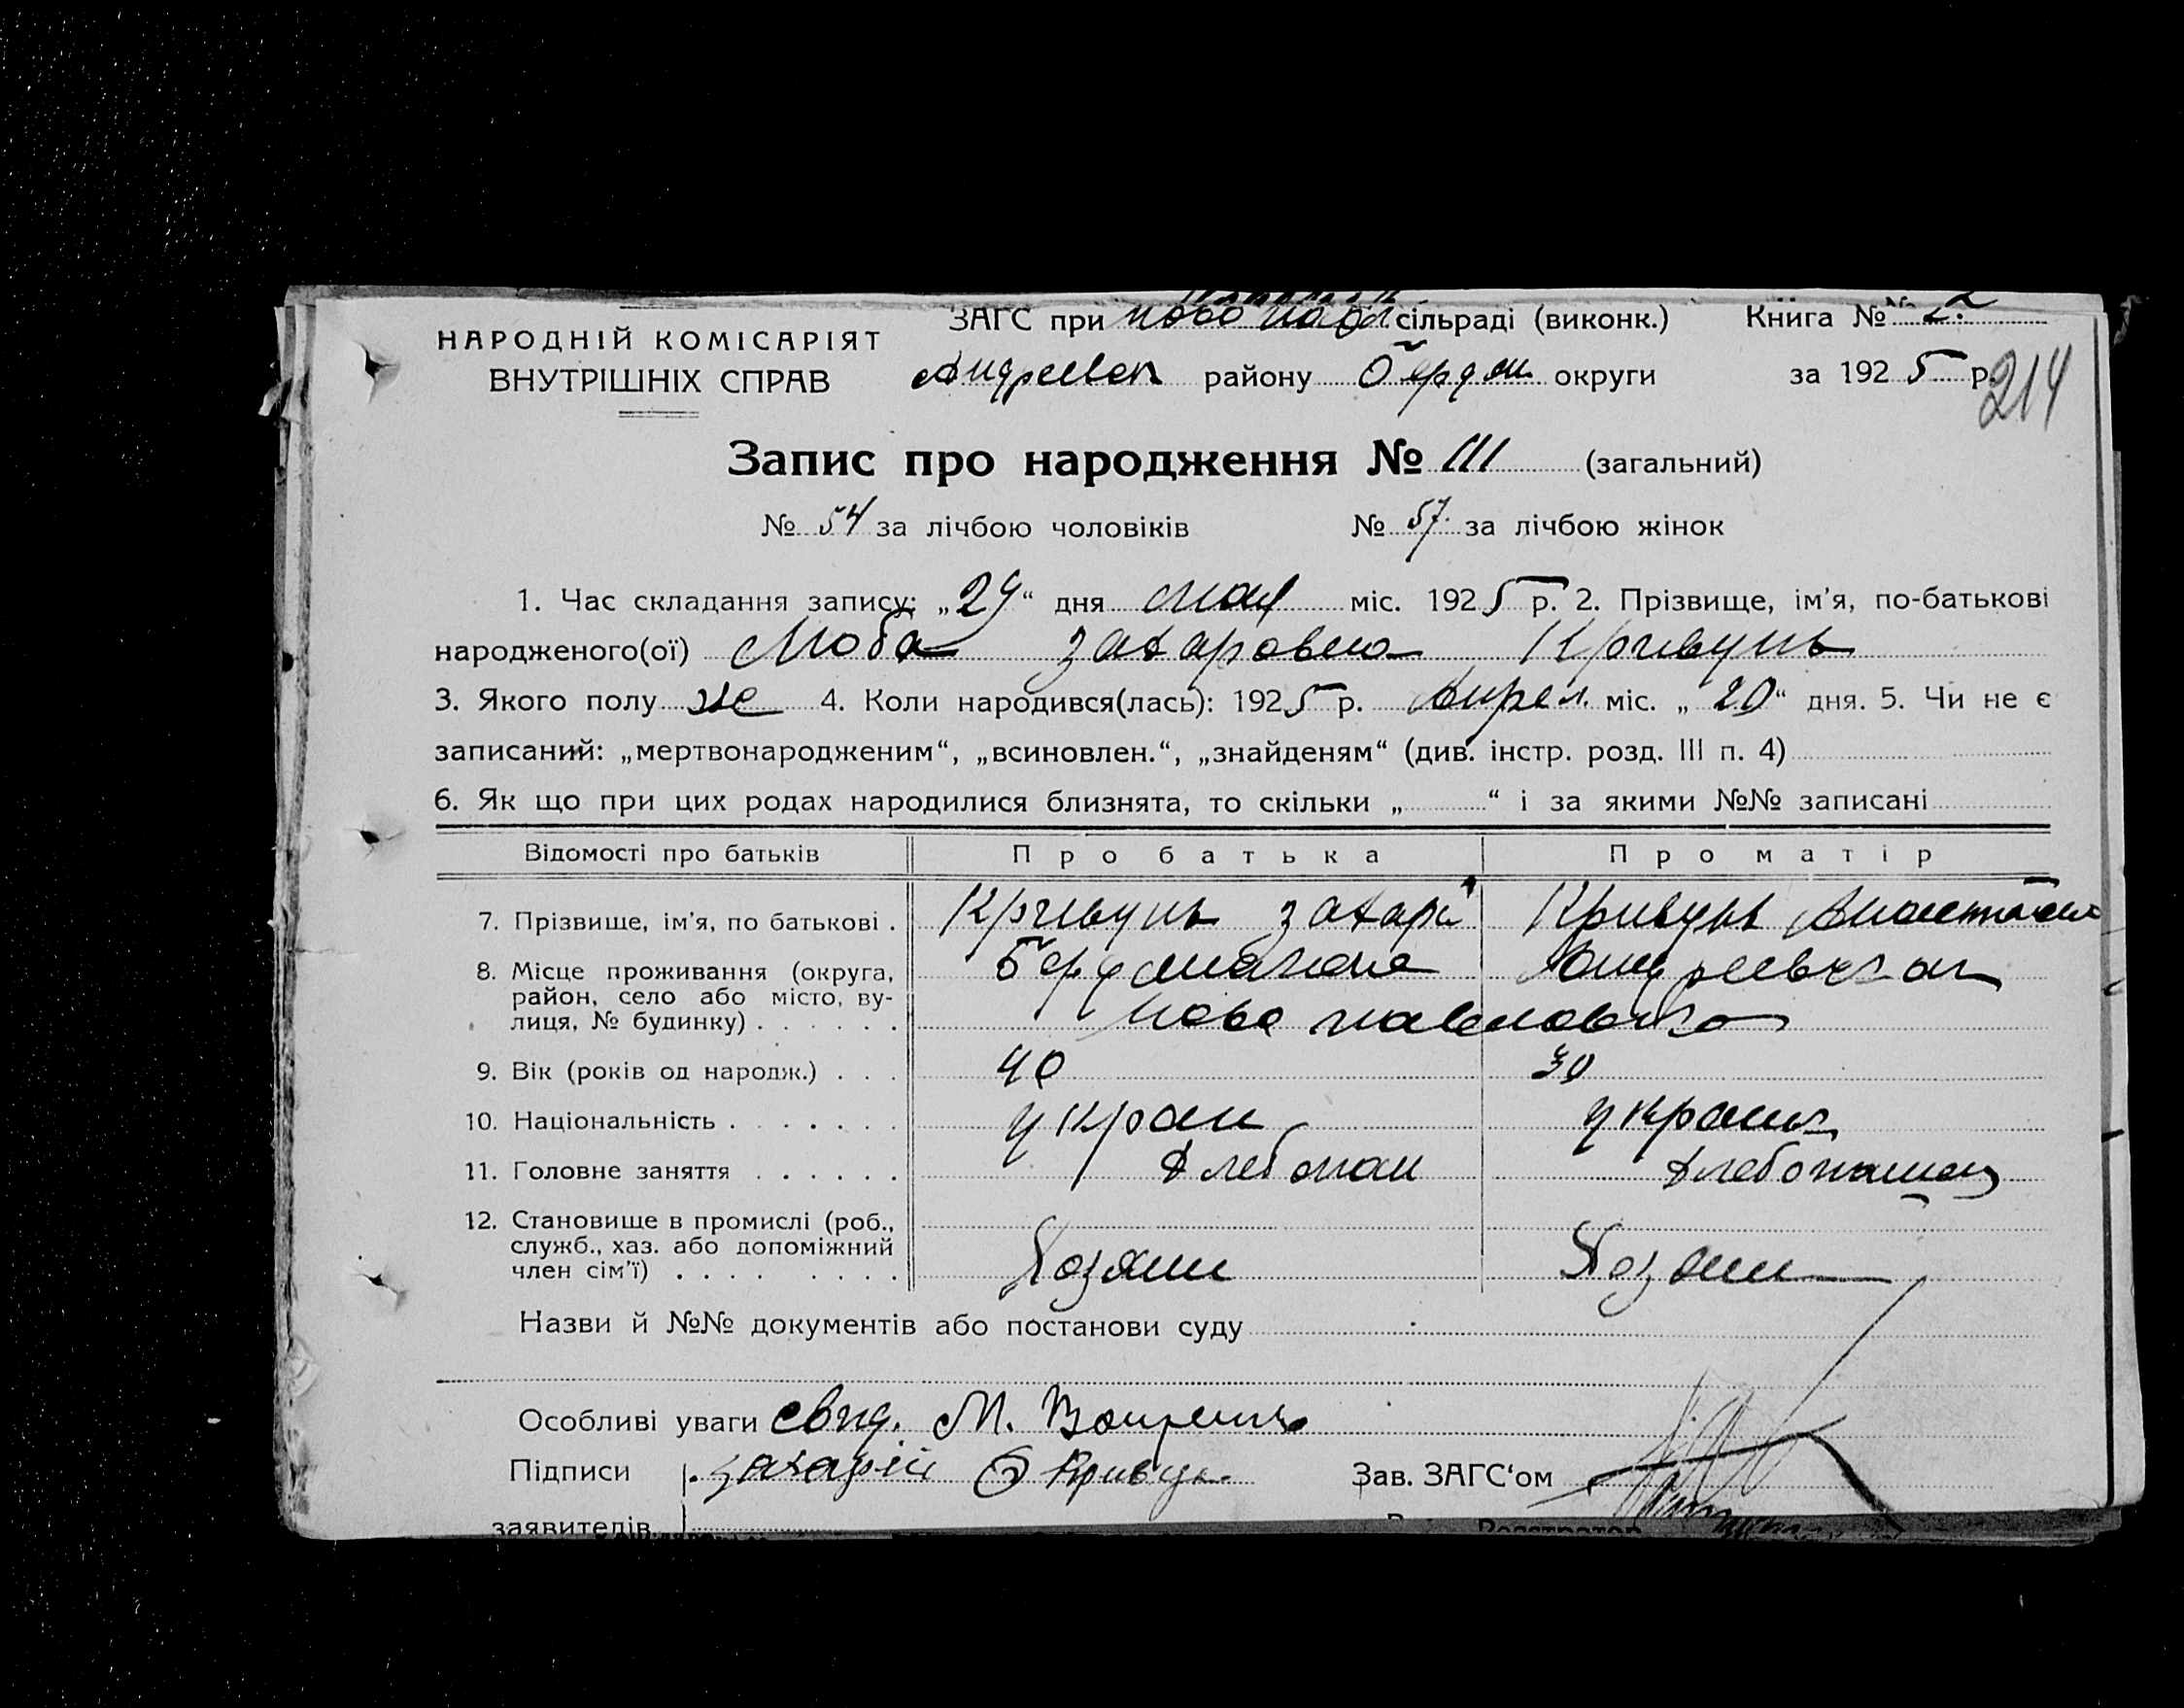 ЗАГС при Ново Павл сільраді (виконк.) Книга № 2.
НАРОДНІЙ КОМІСАРІЯТ
ВНУТРІШНІХ СПРАВ
Андреевск району Бердян округи за 1925 р.
214
Запис про народження № 111 (загальний)
№ 54 за лічбою чоловіків № 57. за лічбою жінок
1. Час складання запису: „29“ дня мая міс. 1925 р. 2. Прізвище, ім'я, по-батькові
народженого(ої) Люба Захаровна Кривунь
3. Якого полу же 4. Коли народився(лась): 1925 р. Апрел. міс. „20“ дня. 5. Чи не є
записаний: „мертвонародженим“, „всиновлен.“, „знайденям“ (див. інстр. розд. III п. 4)
6. Як що при цих родах народилися близнята, то скільки „ “ і за якими №№ записані
Відомості про батьків Про батька Про матір
7. Прізвище, ім'я, по батькові . Кривунь Захари Кривунь Анастасия
8. Місце проживання (округа, район, село або місто, ву-
лиця, № будинку) . . . . . . Андреевская
Ново Павловка
9. Вік (років од народж.) . . . 40 30
10. Національність . . . . . . . украин украин
11. Головне заняття . . . . . . хлебопаш хлебопашец
12. Становище в промислі (роб.,
служб., хаз. або допоміжний
член сім'ї) . . . . . . . . Хозяин Хозяин
Назви й №№ документів або постанови суду
Особливі уваги свид. М.
Підписи Захарій Кривун Зав. ЗАГС‘ом
заявителів Реєстратор